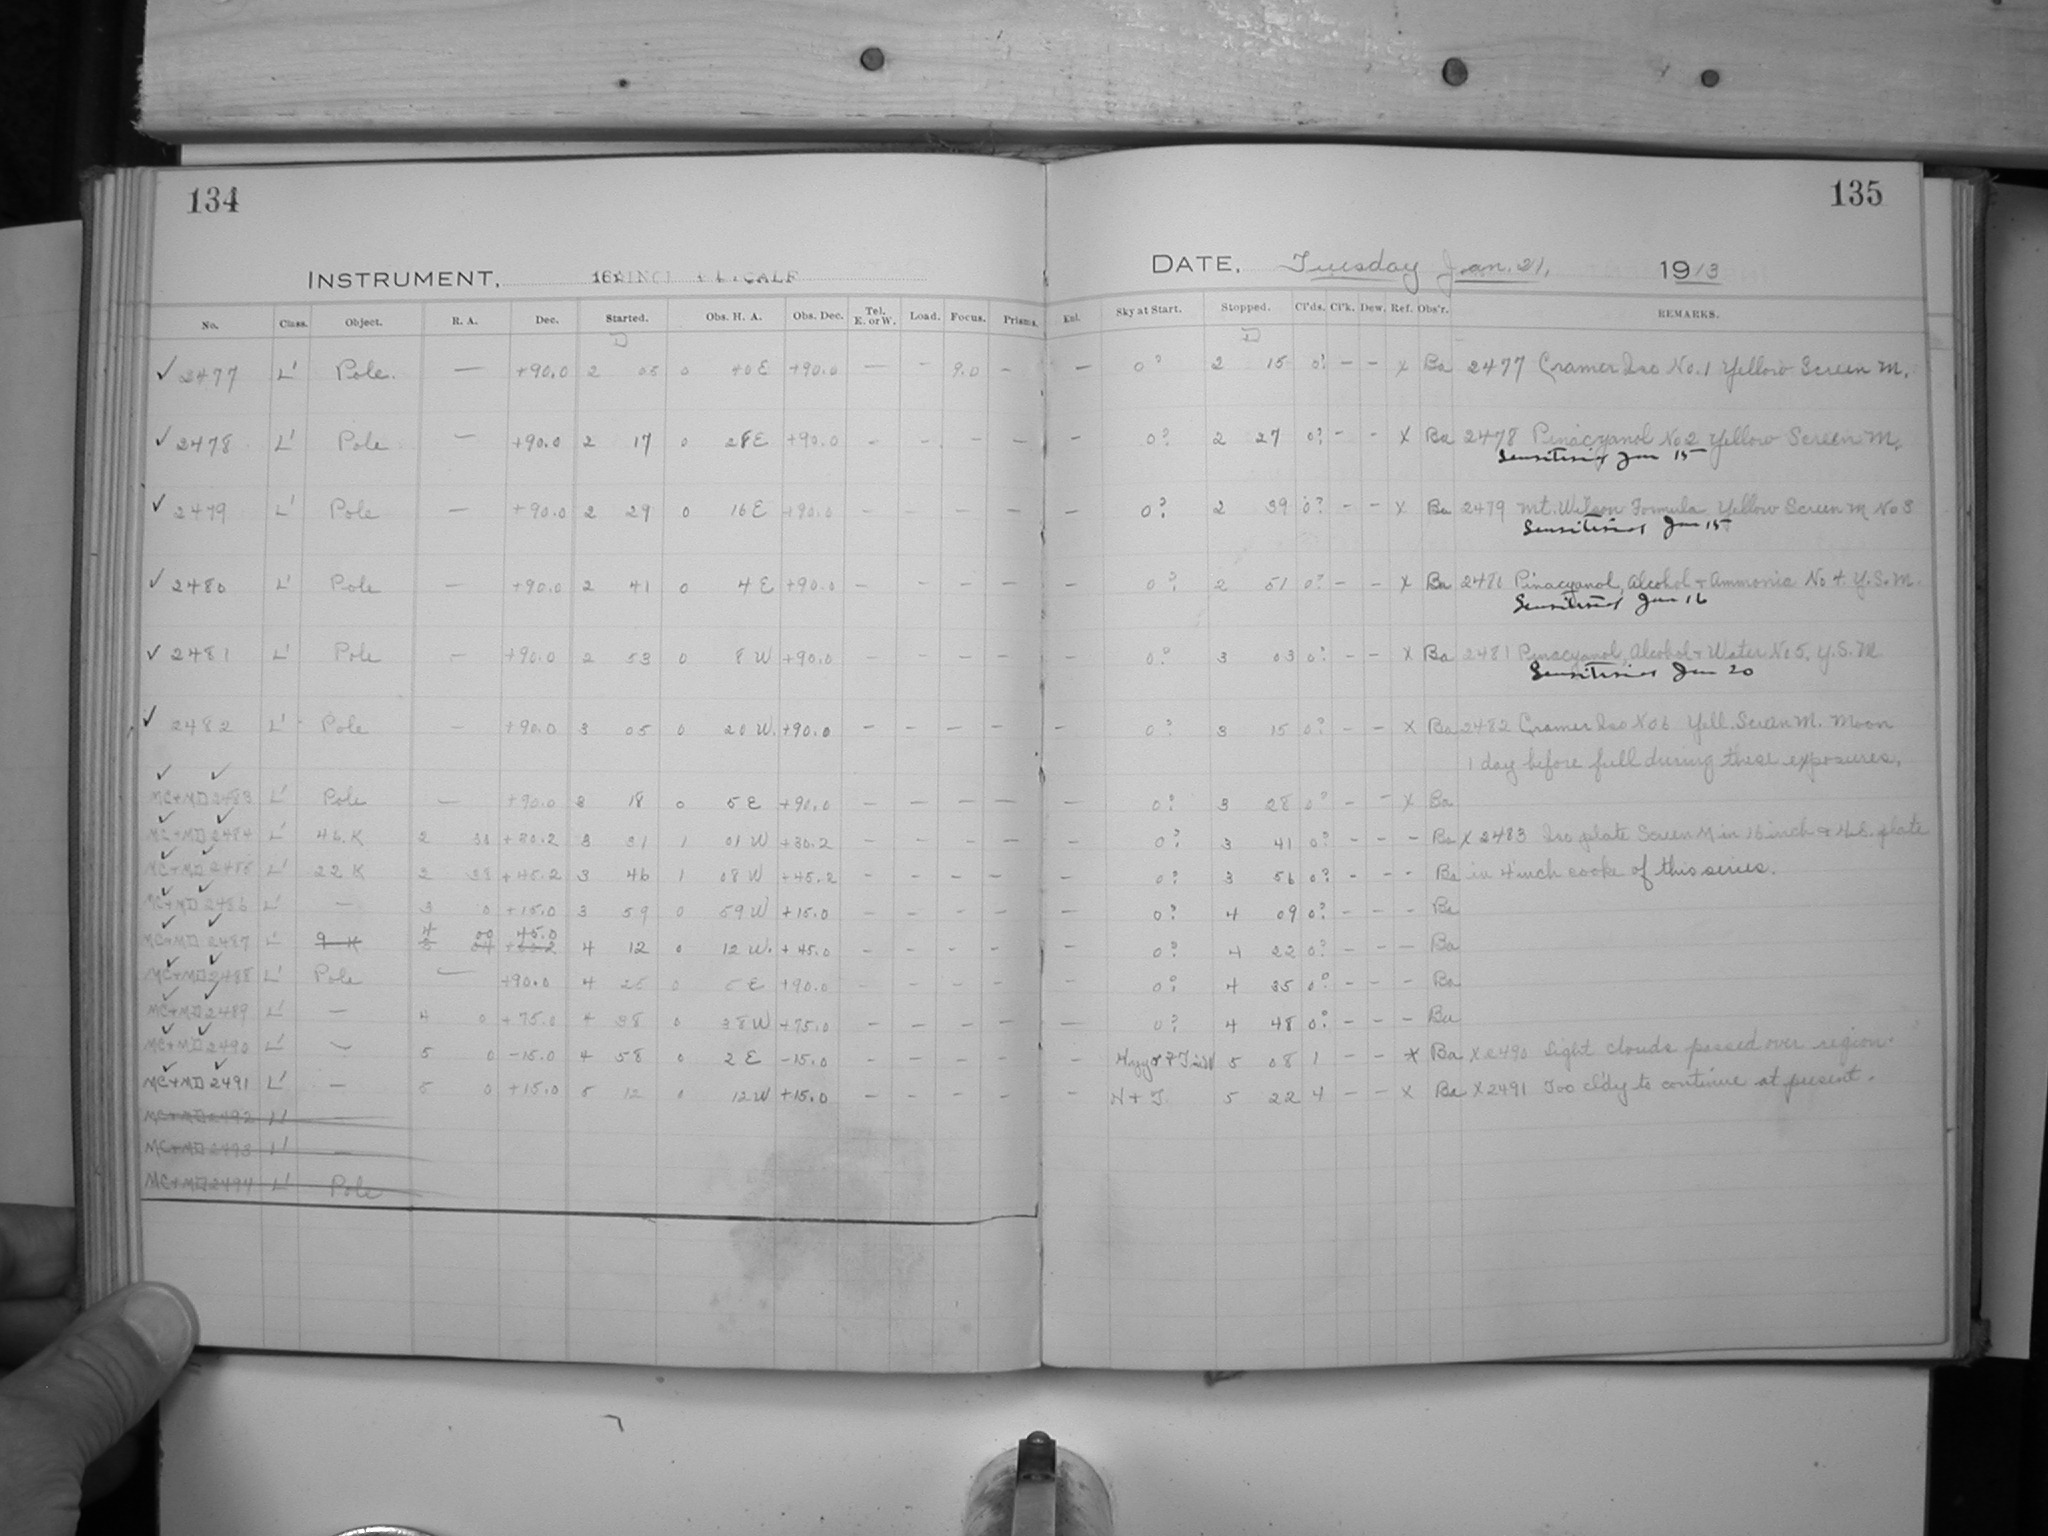 134
INSTRUMENT, 16 INCH METCALF
No. Class. Object. R. A. Dec. Started. Obs. H. A. Obs. Dec. Tel. E. or W. Load. Focus. Prisms.
✓ 2477 L' Pole. — +90.0 2 05 0 40 E +90.0 — - 9.0 -
✓ 2478 L' Pole — +90.0 2 17 0 28 E +90.0 - - - -
✓ 2479 L' Pole — +90.0 2 29 0 16 E +90.0 - - - -
✓ 2480 L' Pole — +90.0 2 41 0 4 E +90.0 - - - -
✓ 2481 L' Pole — +90.0 2 53 0 8 W +90.0 - - - -
✓ 2482 L' Pole — +90.0 3 05 0 20 W. +90.0 - - - -
✓ ✓
MC+MD 2483 L' Pole — +90.0 3 18 0 5 E +90.0 - - - -
MC+MD 2484 L' 46.K 2 +30.2 3 31 1 01 W +30.2 - - - -
MC+MD 2485 L' 22 K 2 38 +45.2 3 46 1 08 W +45.2 - - - -
MC+MD 2486 L' — 3 0 +15.0 3 59 0 59 W +15.0 - - - -
MC+MD 2487 L' 9 K 4 00 45.0 4 12 0 12 W. +45.0 - - - -
MC+MD 2488 L' Pole — +90.0 4 25 0 5 E +90.0 - - - -
MC+MD 2489 L' — 4 0 +75.0 4 38 0 38 W +75.0 - - - -
MC+MD 2490 L' — 5 0 -15.0 4 58 0 2 E -15.0 - - - -
MC+MD 2491 L' — 5 0 +15.0 5 12 0 12 W +15.0 - - - -
MC+MD 2492 L' —
MC+MD 2493 L' —
MC+MD 2494 L' Pole
135
DATE, Tuesday Jan. 21, 1913
End. Sky at Start. Stopped. Cl'ds. Cl'k. Dew. Ref. Obs'r. REMARKS.
— 0? 2 15 0? - - x Ba 2477 Cramer Iso No. 1 Yellow Screen M.
- 0? 2 27 0? - - x Ba 2478 Pinacyanol No 2 Yellow Screen M.
Sensitised Jan 15
- 0? 2 39 0? - - x Ba 2479 Mt. Wilson Formula Yellow Screen M No 3
Sensitised Jan 15
- 0? 2 51 0? - - x Ba 2480 Pinacyanol, Alcohol + Ammonia No 4. Y.S.M.
Sensitised Jan 16
- 0? 3 03 0? - - x Ba 2481 Pinacyanol, Alcohol + Water No 5. Y.S.M
Sensitised Jan 20
- 0? 3 15 0? - - x Ba 2482 Cramer Iso No 6 Yell. Screen M. Moon
1 day before full during these exposures.
- 0? 3 28 0? - - x Ba
- 0? 3 41 0? - - - Ba x 2483 Iso plate Screen M in 16 inch & plate
- 0? 3 56 0? - - - Ba in 4 inch cooke of this series.
- 0? 4 09 0? - - - Ba
- 0? 4 22 0? - - - Ba
- 0? 4 35 0? - - - Ba
— 0? 4 48 0? - - - Ba
- 5 08 1 - - x Ba x 2490 Light clouds passed over region.
- H + T 5 22 4 - - x Ba x 2491 Too cl'dy to continue at present.